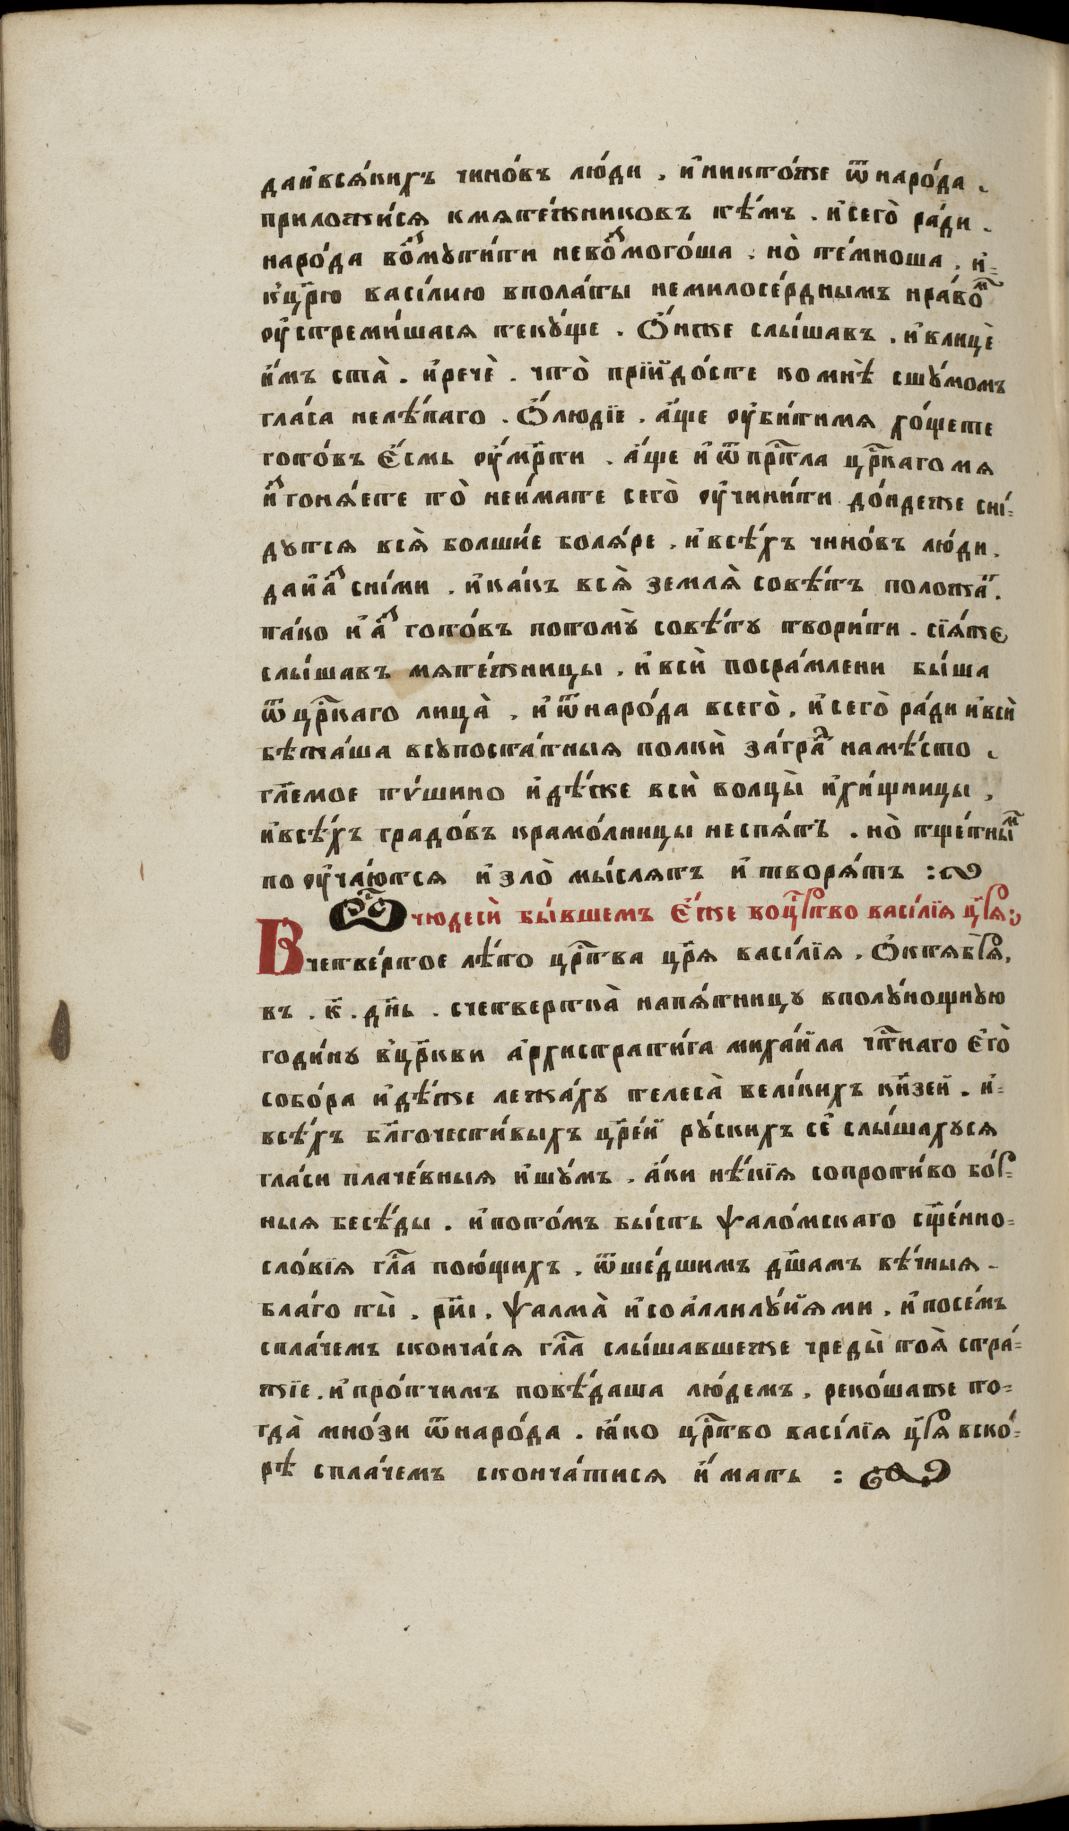 даи҆вся́кихъ чино́въ лю́ди . и҆никто́же ѿнаро́да .
приложи́ся кмяте́жниковъ тѣ́мъ . и҆сего̀ ра́ди .
наро́да во́ᲂзмути́ти невоᲂзмого́ша . но̀ те́мноша . и҆-
кцр҃ю васи́лию впола́ты немилосе́рднымъ нра́вомъ
ᲂу҆стреми́шася теку́ще . Ѻ҆́нже слы́шавъ . и҆влицѐ
и҆́мъ ста̀ . и҆речѐ . что̀ прїидо́сте ко мнѣ̀ сшу́момъ
гла́са нелѣ́паго . Ѽлю́дїе . а҆́ще ᲂу҆би́тимя хо́щете
гото́въ Є҆́смь ᲂу҆мр҃ти . а҆́ще и҆ѿпрⷭ҇тла црⷭ҇каго мя
и҆згоня́ете то̀ неи́мате сего̀ ᲂу҆чини́ти до́ндеже сні́-
дутся вся̀ болши́е боля́ре . и҆всѣ́хъ чино́въ лю́ди .
даи҆а҆́зъ сні́ми . и҆ка́къ вся̀ земля̀ совѣ́тъ положа́тъ .
та́ко и҆а҆́зъ гото́въ потому̀ совѣ́ту твори́ти . сїя́же
слы́шавъ мяте́жницы . и҆всѝ посра́млени бы́ша
ѿцрⷭ҇каго лица̀ . и҆ѿнаро́да всего̀ . и҆сего̀ ра́ди и҆всѝ
бѣжа́ша всупоста́тныя полкѝ за́градъ намѣ́сто .
гл҃емое ту́шино и҆дѣ́же всѝ волцы̀ и҆хи́щницы .
и҆всѣ́хъ градо́въ крамо́лницы неспя́тъ . но̀ тще́тнымъ
поᲂу҆ча́ются и҆зло̀ мы́слятъ и҆творя́тъ :
Ѽчюдесѝ бы́вшемъ Є҆́же воцрⷭ҇тво васи́лїя цр҃я :
Вчетве́ртое лѣ́то црⷭ҇тва цр҃я васи́лїя . Ѻ҆ктябр҃я .
въ . к҃ . дн҃ь . счетвертка̀ напя́тницу вполу́нощную
годи́ну в̾цр҃кви а҆рхистрати́га михаи́ла чтⷭ҇наго Є҆го̀
собо́ра и҆дѣ́же лежа́ху телеса̀ вели́кихъ кн҃зей . и҆-
всѣ́хъ бл҃гочести́выхъ цр҃е́й ру́скихъ се҆ слы́шахуся
гла́си плаче́вныя и҆шу́мъ . а҆́ки нѣ́кїя сопроти́во бо́р-
ныя бесѣ́ды . и҆пото́мъ бы́сть ѱало́мскаго сщ҃е́нно-
сло́вїя гл҃а пою́щихъ . ѿше́дшимъ дш҃амъ вѣ́чныя -
благо ты̀ . рн҃і . ѱалма̀ и҆соа҆ллилу́йями . и҆посе́мъ
спла́чемъ сконча́ся гл҃а слы́шавшеже чреды̀ тоя̀ стра́-
жїе . и҆про́тчимъ повѣ́даша лю́демъ . реко́шаже то-
гда̀ мно́зи ѿнаро́да . ꙗ҆́ко црⷭ҇тво васи́лїя цр҃я вско́-
рѣ спла́чемъ сконча́тися и҆́мать :